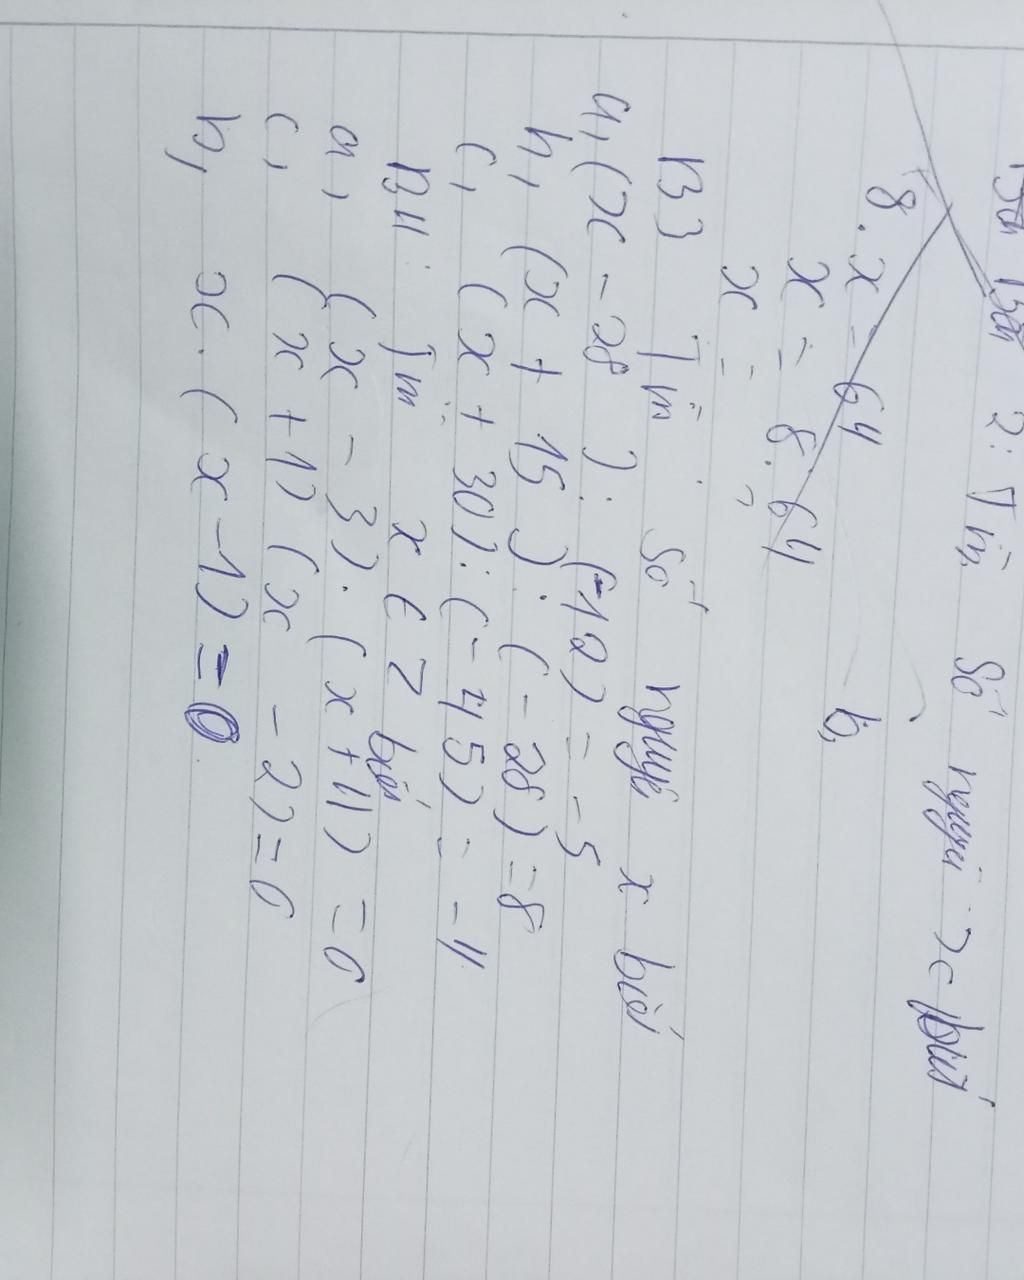 Bài 2: Tìm số nguyên x biết
8.x = 64
b,
x = 8.64
x =
B3 Tìm số nguyên x biết
a, (x - 28) : (-12) = -5
b, (x + 15) : (-28) = 8
c, (x + 30) : (-45) = -4
B4: Tìm x ∈ Z biết
a, (x - 3) . (x + 4) = 0
c, (x + 1) (x - 2) = 0
b, x . (x - 1) = 0